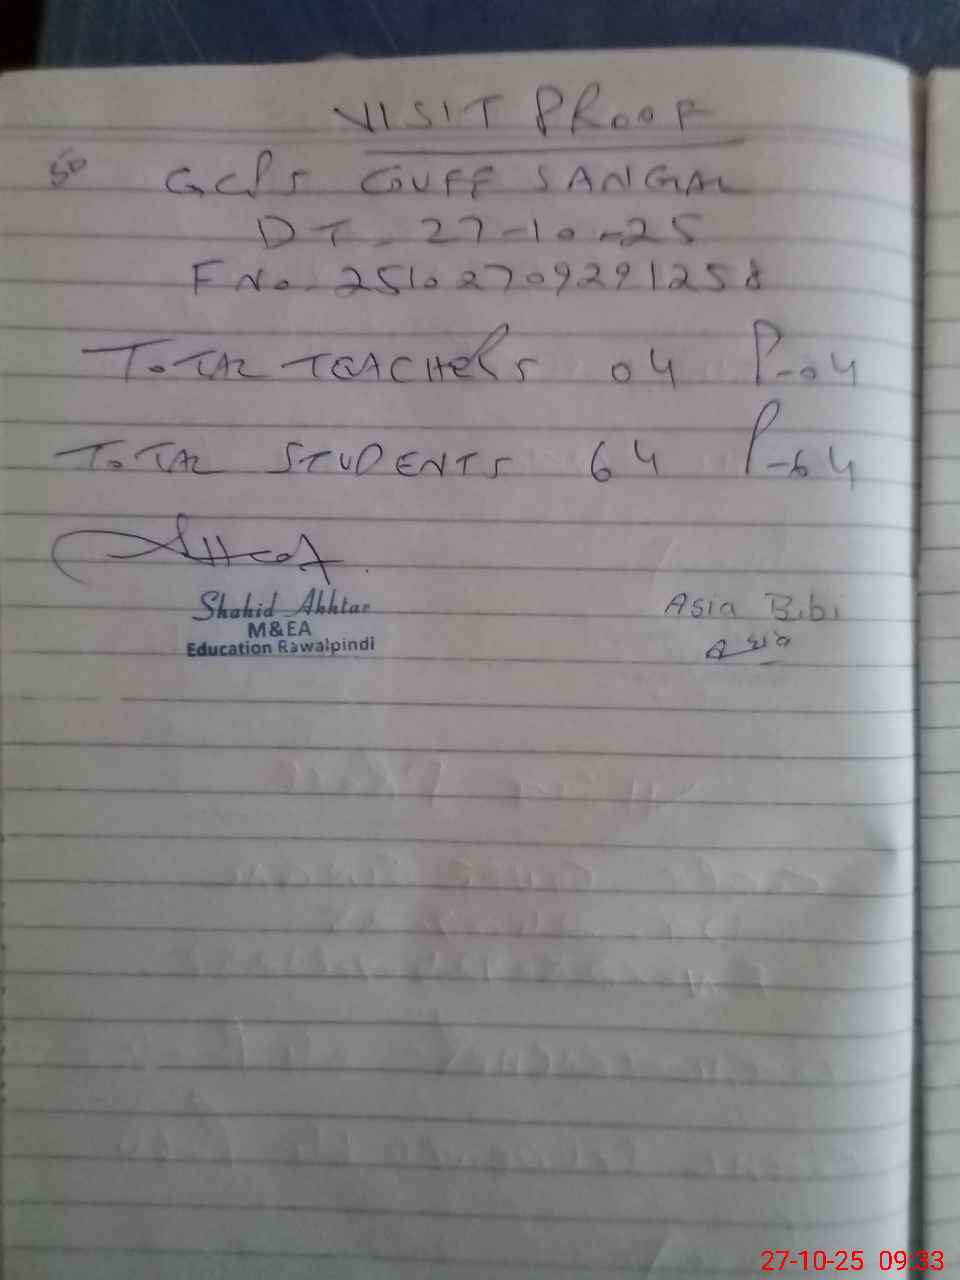 VISIT PROOF
50 GCPS GUFF SANGAL
DT - 27-10-25
F No. 25102709291258
TOTAL TEACHERS 04 P-04
TOTAL STUDENTS 64 P-64
Shahid Akhtar
M&EA
Education Rawalpindi
Asia Bibi
Asia
27-10-25 09:33